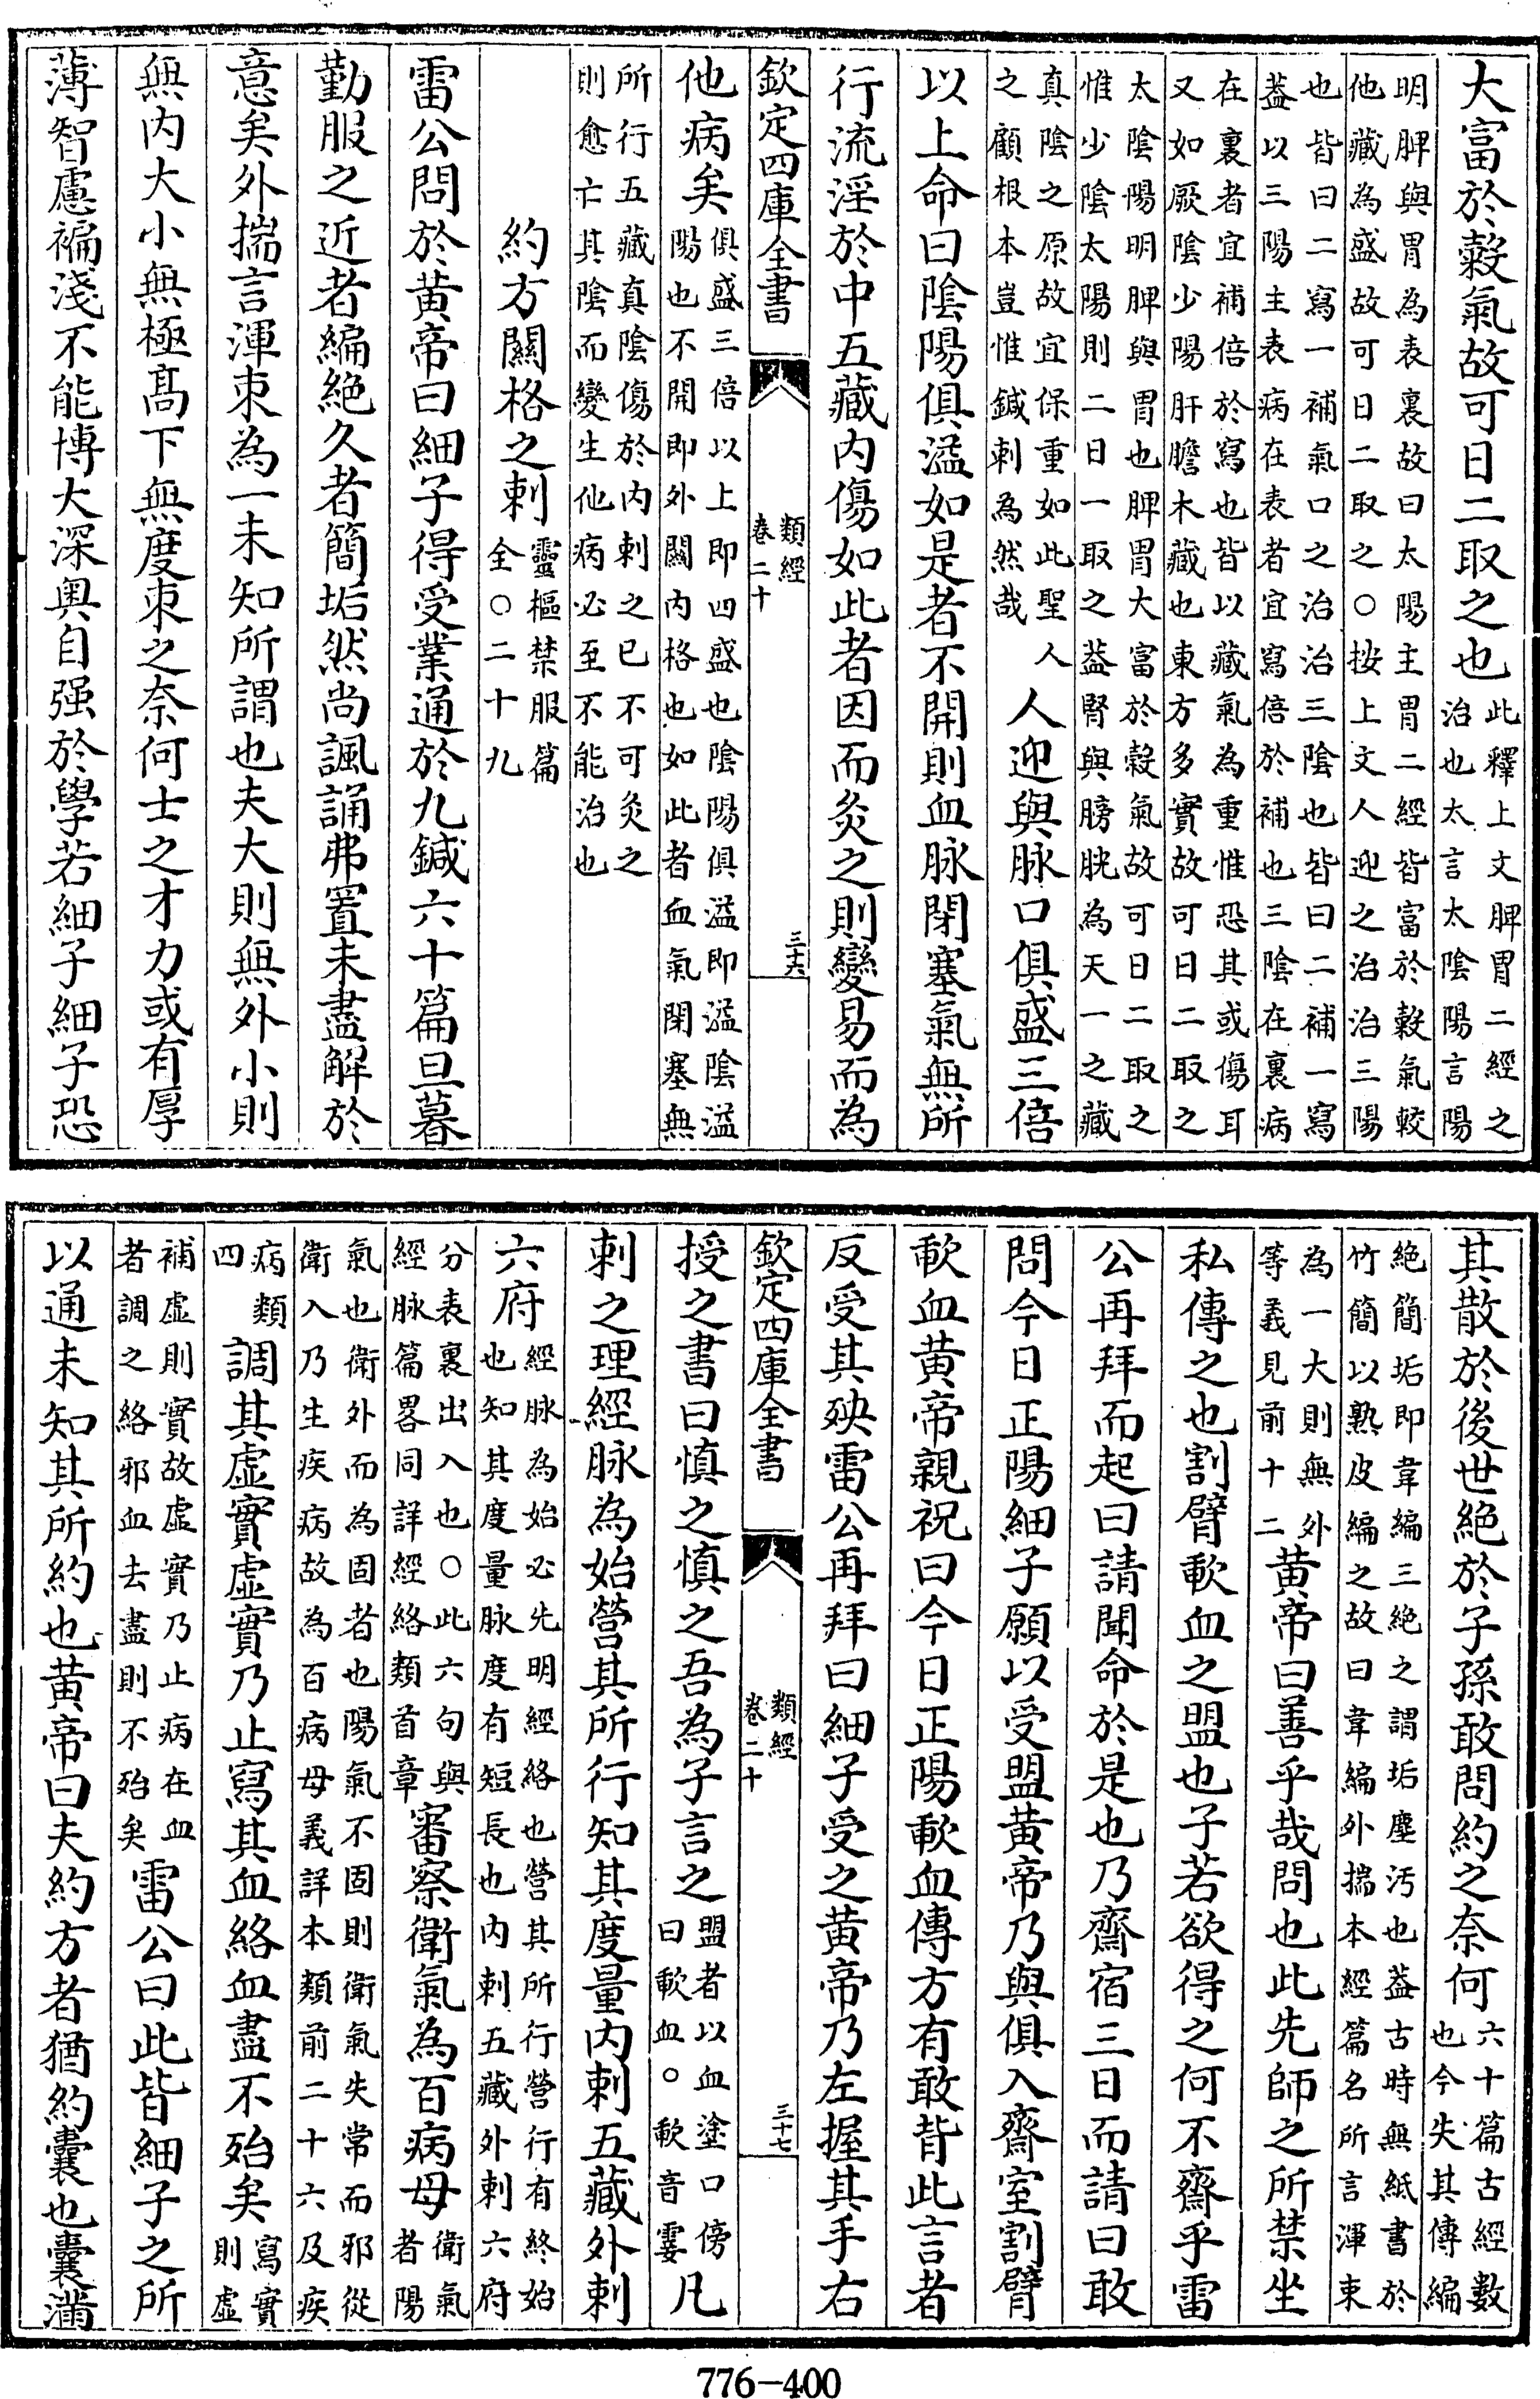 大富於穀氣故可日二取之也此釋上文脾胃二經之
治也太言太陰陽言陽
明脾與胃為表裏故曰太陽主胃二經皆富於穀氣較
他藏為盛故可日二取之○按上文人迎之治治三陽
也皆曰二寫一補氣口之治治三陰也皆曰二補一寫
葢以三陽主表病在表者宜寫倍於補也三陰在裏病
在裏者宜補倍於寫也皆以藏氣為重惟恐其或傷耳
又如厥陰少陽肝膽木藏也東方多實故可日二取之
太陰陽明脾與胃也脾胃大富於穀氣故可日二取之
惟少陰太陽則二日一取之葢腎與膀胱為天一之藏
真陰之原故宜保重如此聖人
之顧根本豈惟鍼刺為然哉
人迎與脉口俱盛三倍
以上命曰陰陽俱溢如是者不開則血脉閉塞氣無所
行流淫於中五藏内傷如此者因而灸之則變易而為
欽定四庫全書
類經
卷二十
三十六
他病矣俱盛三倍以上即四盛也陰陽俱溢即溢陰溢
陽也不開即外關内格也如此者血氣閉塞無
所行五藏真陰傷於内刺之已不可灸之
則愈亡其陰而變生他病必至不能治也
約方關格之刺靈樞禁服篇
全○二十九
雷公問於黄帝曰細子得受業通於九鍼六十篇旦暮
勤服之近者編絶久者簡垢然尚諷誦弗置未盡解於
意矣外揣言渾束為一未知所謂也夫大則無外小則
無内大小無極髙下無度束之奈何士之才力或有厚
薄智慮褊淺不能博大深奥自强於學若細子細子恐
其散於後世絶於子孫敢問約之奈何六十篇古經數
也今失其傳編
絶簡垢即韋編三絶之謂垢塵汚也葢古時無紙書於
竹簡以熟皮編之故曰韋編外揣本經篇名所言渾束
為一大則無外
等義見前十二
黄帝曰善乎哉問也此先師之所禁坐
私傳之也割臂歃血之盟也子若欲得之何不齋乎雷
公再拜而起曰請聞命於是也乃齋宿三日而請曰敢
問今日正陽細子願以受盟黄帝乃與俱入齋室割臂
歃血黄帝親祝曰今日正陽歃血傳方有敢背此言者
反受其殃雷公再拜曰細子受之黄帝乃左握其手右
欽定四庫全書
類經
卷二十
三十七
授之書曰慎之慎之吾為子言之盟者以血塗口傍
曰歃血○歃音霎
凡
刺之理經脉為始營其所行知其度量内刺五藏外刺
六府經脉為始必先明經絡也營其所行營行有終始
也知其度量脉度有短長也内刺五藏外刺六府
分表裏出入也○此六句與
經脉篇畧同詳經絡類首章
審察衛氣為百病母衛氣
者陽
氣也衛外而為固者也陽氣不固則衛氣失常而邪從
衛入乃生疾病故為百病母義詳本類前二十六及疾
病類
四
調其虚實虚實乃止寫其血絡血盡不殆矣寫實
則虚
補虚則實故虚實乃止病在血
者調之絡邪血去盡則不殆矣
雷公曰此皆細子之所
以通未知其所約也黄帝曰夫約方者猶約囊也囊滿
776-400